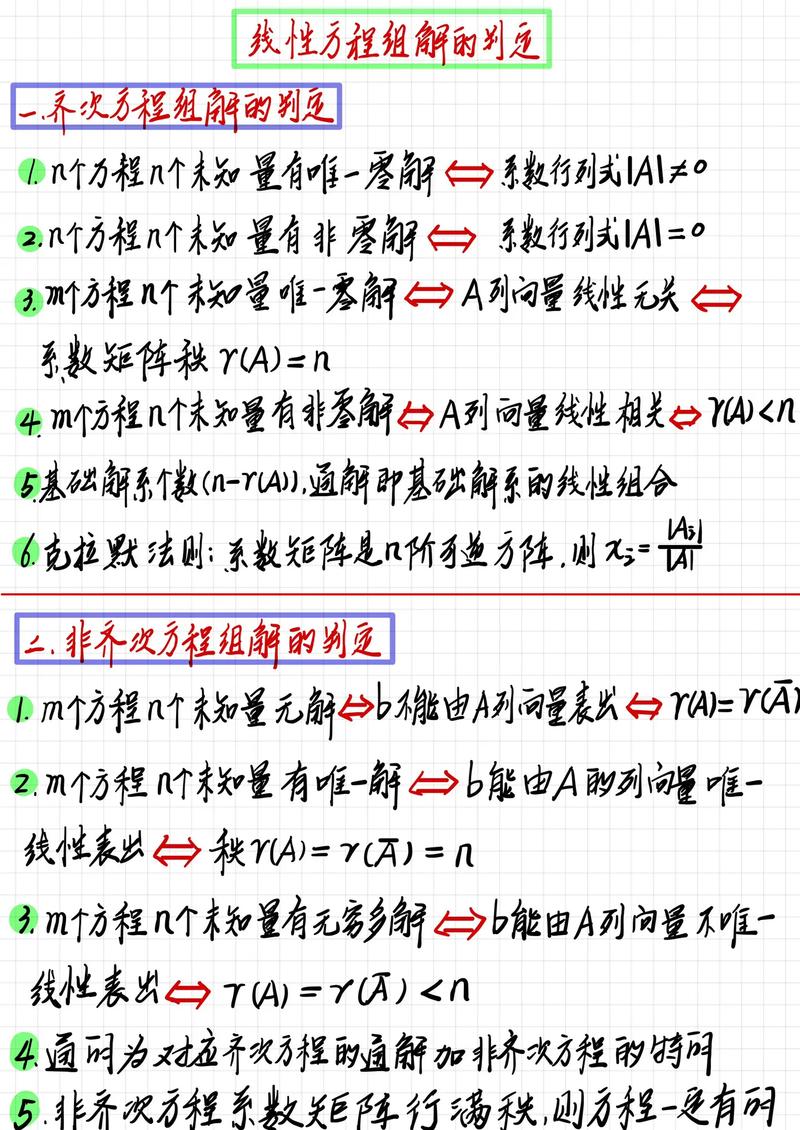 线性方程组解的判定
一.齐次方程组解的判定
1. n个方程n个未知量有唯一零解⇔系数行列式|A|≠0
2. n个方程n个未知量有非零解⇔系数行列式|A|=0
3. m个方程n个未知量唯一零解⇔A列向量线性无关⇔
系数矩阵秩 r(A)=n
4. m个方程n个未知量有非零解⇔A列向量线性相关⇔r(A)<n
5.基础解系个数(n-r(A)),通解即基础解系的线性组合
6.克拉默法则:系数矩阵是n阶可逆方阵,则 xᵢ=|Aᵢ|/|A|
二.非齐次方程组解的判定
1. m个方程n个未知量无解⇔b不能由A列向量表出⇔r(A)=r(Ā)
2. m个方程n个未知量有唯一解⇔b能由A的列向量唯一
线性表出⇔秩r(A)=r(Ā)=n
3. m个方程n个未知量有无穷多解⇔b能由A列向量不唯一
线性表出⇔r(A)=r(Ā)<n
4.通解为对应齐次方程的通解加非齐次方程的特解
5.非齐次方程系数矩阵行满秩,则方程一定有解